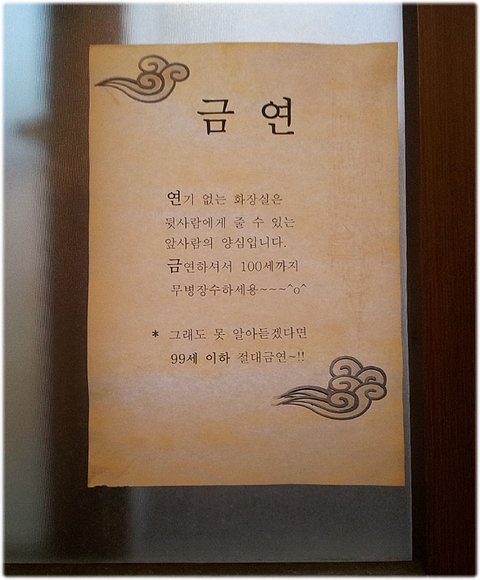 금 연
연기 없는 화장실은
뒷사람에게 줄 수 있는
앞사람의 양심입니다.
금연하셔서 100세까지
무병장수하세용~~~^o^
* 그래도 못 알아듣겠다면
99세 이하 절대금연~!!